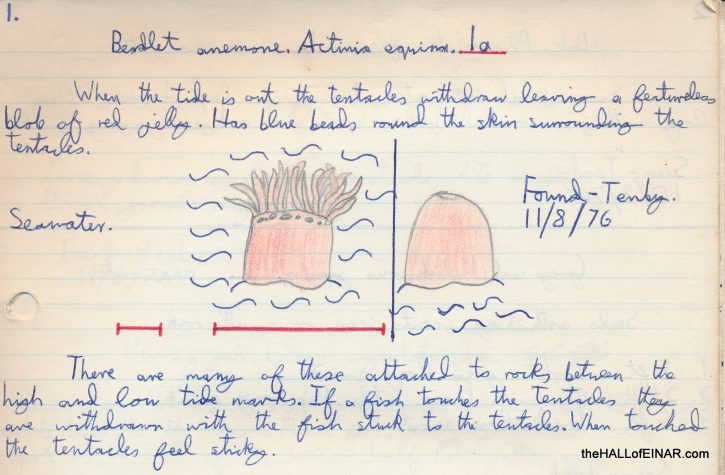 1.
Beadlet anemone. Actinia equina. 1a
When the tide is out the tentacles withdraw leaving a featureless
blob of red jelly. Has blue beads round the skin surrounding the
tentacles.
Seawater.
Found - Tenby.
11/8/76
There are many of these attached to rocks between the
high and low tide marks. If a fish touches the tentacles they
are withdrawn with the fish stuck to the tentacles. When touched
the tentacles feel sticky.
theHALLofEINAR.com